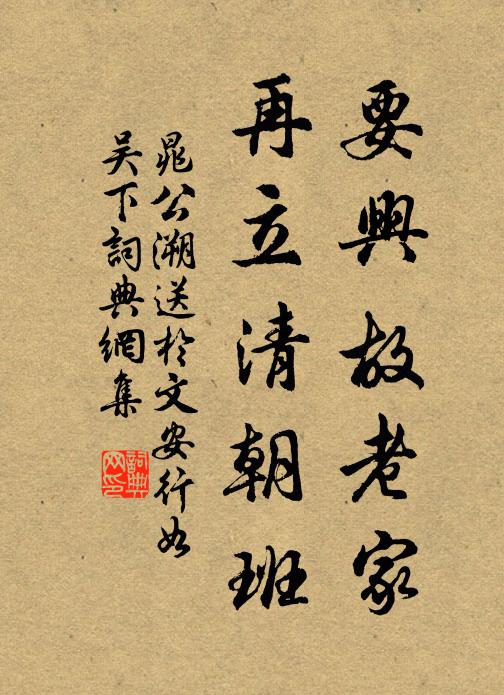 要興故老家
再立清朝班
晁公溯送於文安行如
吳下詞典網集
詞典
网印